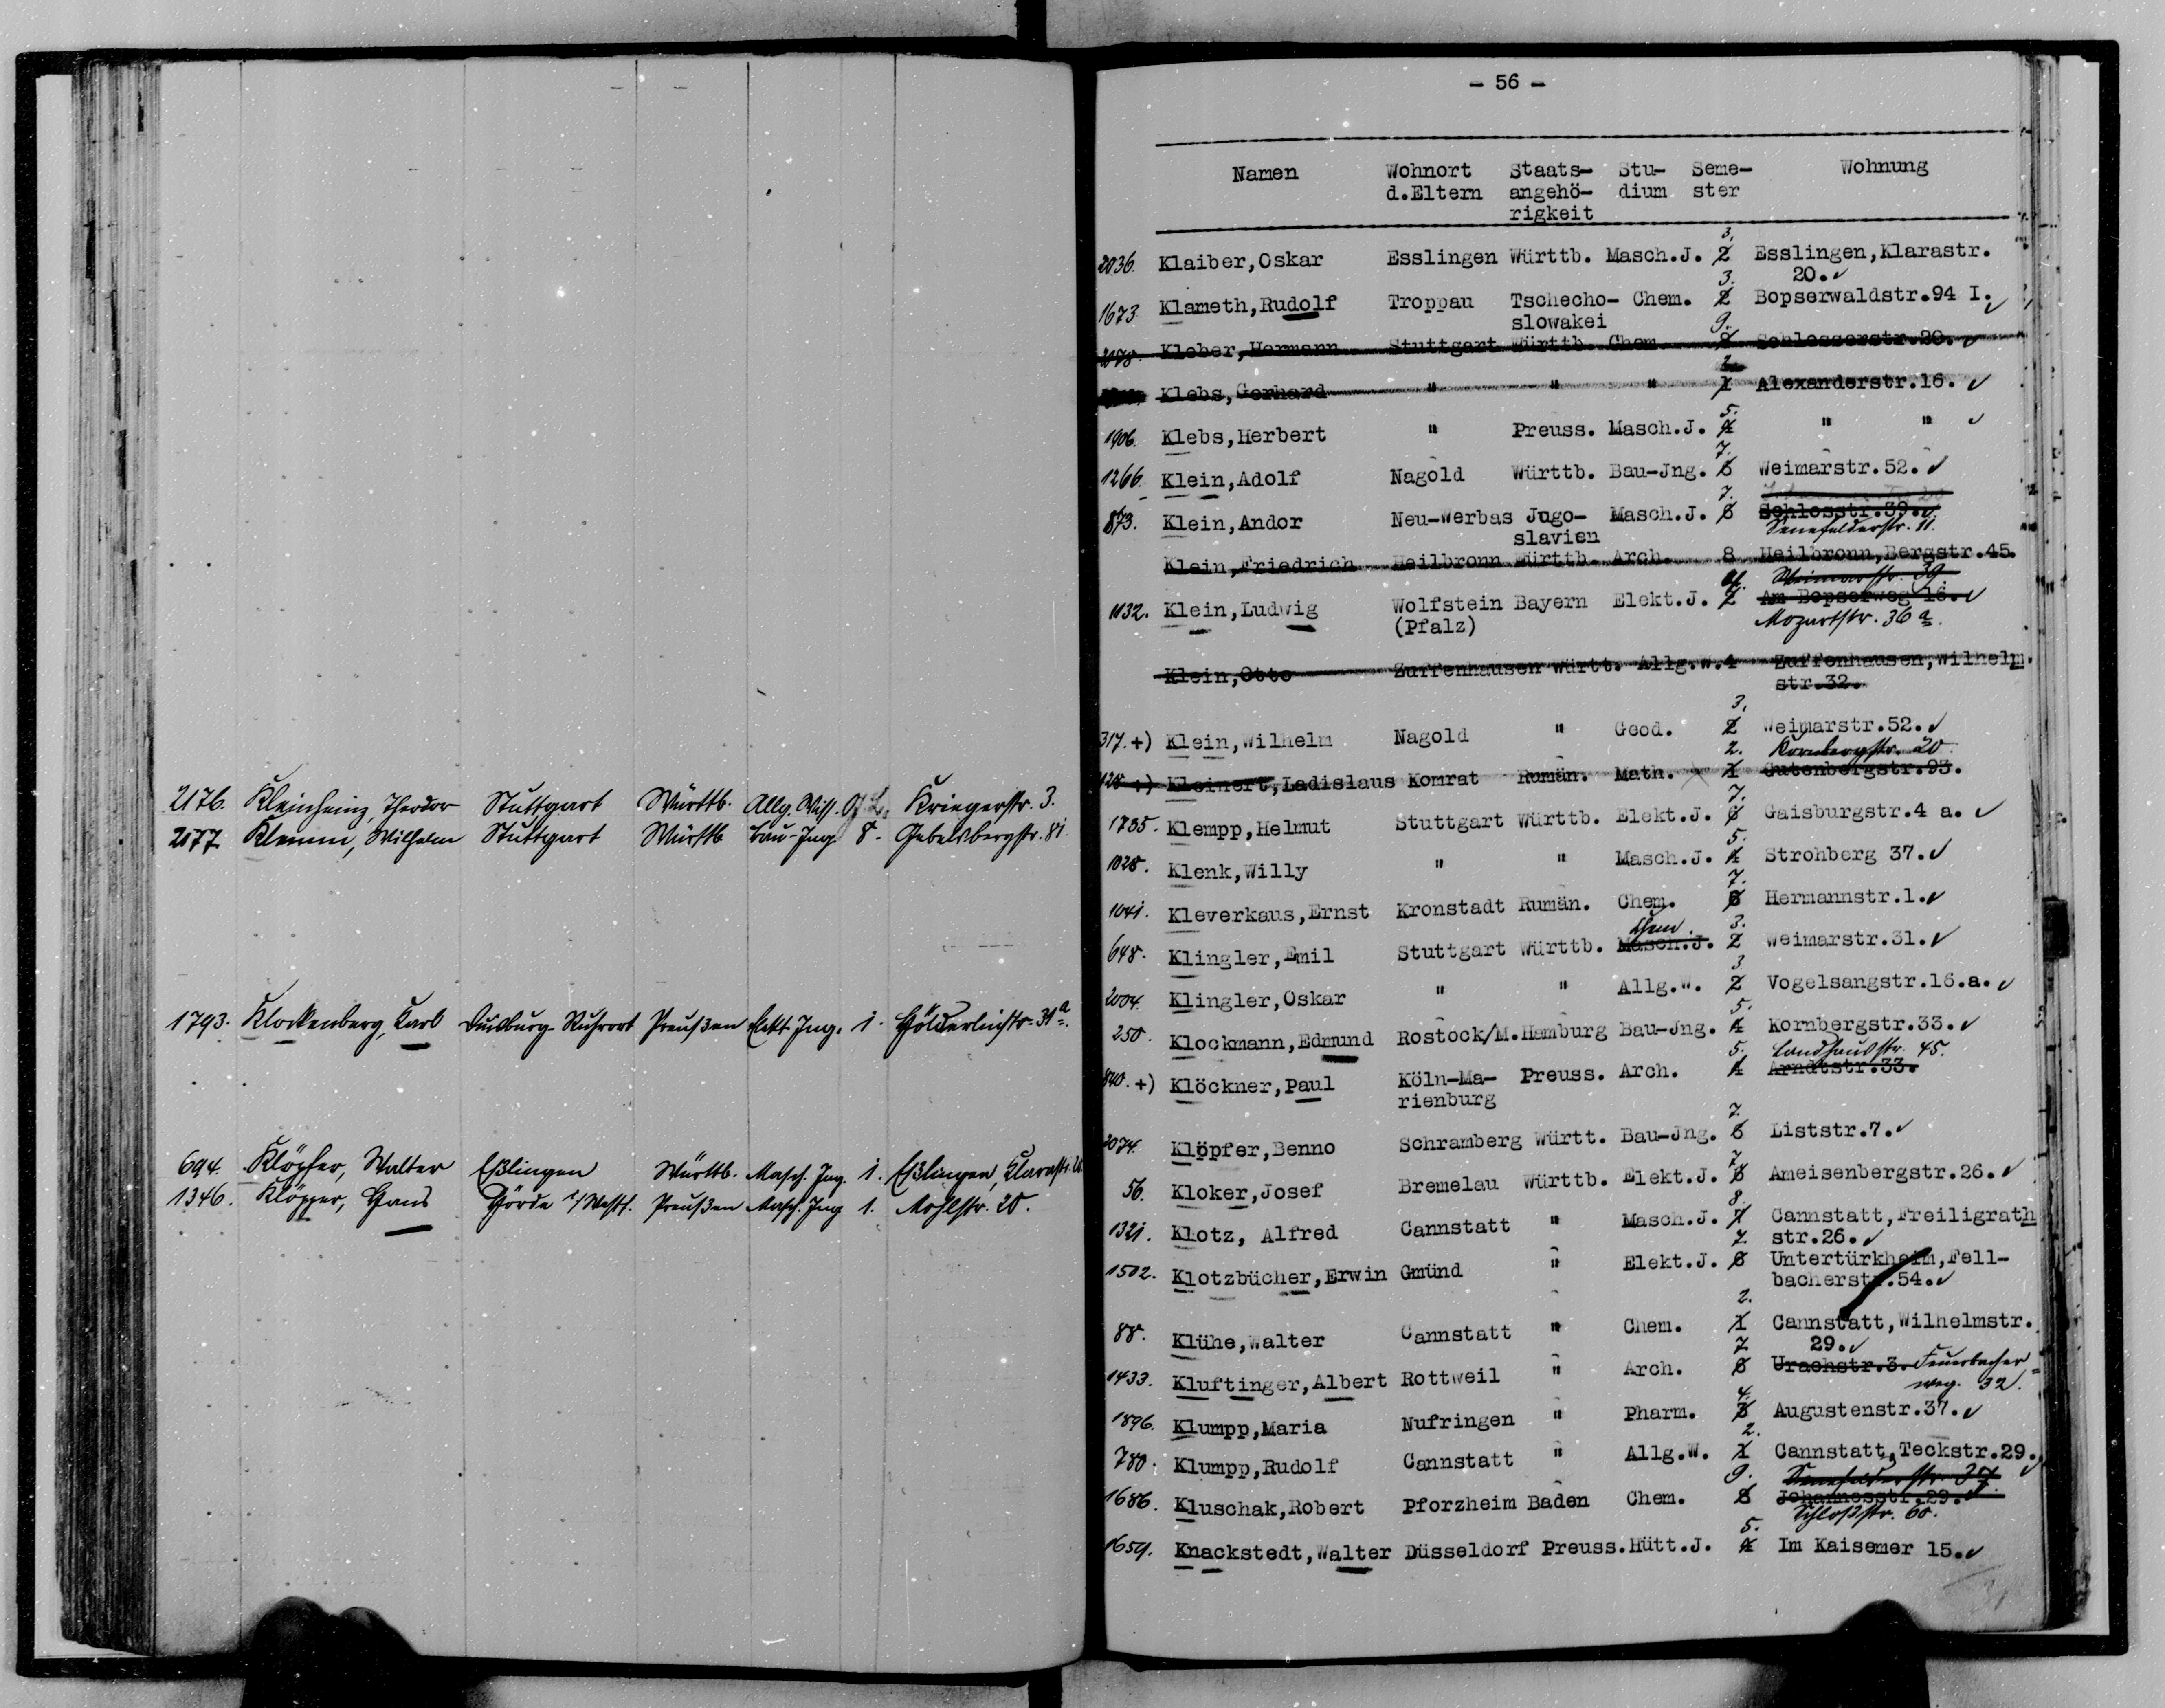 2176. Kleinheinz, Theodor Stuttgart Württb. Allg. Wiss. Kriegerstr. 3.
2177 Klemm, Wilhelm Stuttgart Württb Bau-Ing. 8. Gebelsbergstr. 81.
1793. Klockenberg, Karl Duisburg-Ruhrort Preußen Elekt. Ing. 1. Hölderlinstr. 31a.
694. Klöpfer, Walter Eßlingen Württb. Masch. Ing. 1. Eßlingen, Klarastr.
1346. Klöpper, Hans Hörde i/Westf. Preußen Masch. Ing 1. Mohlstr. 20.
- 56 -
Namen Wohnort Staats- Stu- Seme- Wohnung
d.Eltern angehö- dium ster
rigkeit
3.
2036. Klaiber,Oskar Esslingen Württb. Masch.J. 2 Esslingen,Klarastr.
3. 20.✓
1673. Klameth,Rudolf Troppau Tschecho- Chem. 2 Bopserwaldstr.94 I.✓
slowakei 9.
2078. Kleber,Hermann Stuttgart Württb. Chem. 8 Schlosserstr.20. ✓
Klebs,Gerhard " " " 1 Alexanderstr.16. ✓
5.
1906. Klebs,Herbert " Preuss. Masch.J. 4 " " ✓
7.
1266. Klein,Adolf Nagold Württb. Bau-Jng. 6 Weimarstr.52.✓
7.
873. Klein,Andor Neu-Werbas Jugo- Masch.J. 6 Schlosstr.39.✓
slavien Senefelderstr. 11.
Klein,Friedrich Heilbronn Württb. Arch. 8 Heilbronn,Bergstr.45.
Weimarstr. 39.
1132. Klein,Ludwig Wolfstein Bayern Elekt.J. Am Bopserweg 16.✓
(Pfalz) Mozartstr. 36 a.
Klein,Otto Zuffenhausen Württ. Allg.W.4 Zuffenhausen,Wilhelm.
str.32.
3.
317.+) Klein,Wilhelm Nagold " Geod. 2 Weimarstr.52.✓
2. Kornbergstr. 20
128 +) Kleinert,Ladislaus Komrat Rumän. Math. 1 Gutenbergstr.93.
7.
1735. Klempp,Helmut Stuttgart Württb. Elekt.J. 6 Gaisburgstr.4 a. ✓
5.
1028. Klenk,Willy " " Masch.J. 4 Strohberg 37.✓
7.
1041. Kleverkaus,Ernst Kronstadt Rumän. Chem. 6 Hermannstr.1.✓
Chem. 3.
648. Klingler,Emil Stuttgart Württb. Masch.J. 2 Weimarstr.31.✓
3
2004. Klingler,Oskar " " Allg.W. 2 Vogelsangstr.16.a.✓
5.
250. Klockmann,Edmund Rostock/M.Hamburg Bau-Jng. 4 Kornbergstr.33.✓
5. Landhausstr. 45.
840.+) Klöckner,Paul Köln-Ma- Preuss. Arch. 4 Arndtstr.33.
rienburg
7.
2074. Klöpfer,Benno Schramberg Württ. Bau-Jng. 6 Liststr.7.✓
7
56. Kloker,Josef Bremelau Württb. Elekt.J. 6 Ameisenbergstr.26.✓
8.
1321. Klotz, Alfred Cannstatt " Masch.J. 7 Cannstatt,Freiligrath
7. str.26.✓
1502. Klotzbücher,Erwin Gmünd " Elekt.J. 6 Untertürkheim,Fell-
bacherstr.54.✓
2.
88. Klühe,Walter Cannstatt " Chem. 1 Cannstatt,Wilhelmstr.
7 29.✓
1433. Kluftinger,Albert Rottweil " Arch. 6 Urachstr.3. Feuerbacher
weg. 32.
4.
1896. Klumpp,Maria Nufringen " Pharm. 3 Augustenstr.37.✓
2.
780. Klumpp,Rudolf Cannstatt " Allg.W. 1 Cannstatt,Teckstr.29.✓
9. Senefelderstr. 37
1686. Kluschak,Robert Pforzheim Baden Chem. 8 Johannesstr.29.✓
5. Schloßstr. 60.
1659. Knackstedt,Walter Düsseldorf Preuss.Hütt.J. 4 Im Kaisemer 15.✓